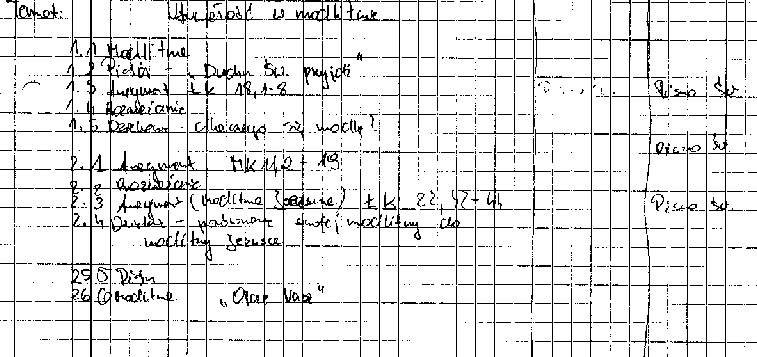 Temat: Ufność w modlitwie
1.1 Modlitwa
1.2 Pieśń - „Duchu Św. przyjdź"
1.3 Fragment Łk 18,1-8 Pismo Św.
1.4 Rozważanie
1.5 Dzielenie - dlaczego się modlę?
Pismo Św
2.1 Fragment Mk
2.2 Rozważanie
2.3 Fragment (modlitwa Jezusa) Łk 22, Pismo Św.
2.4 Dzielenie - porównanie swojej modlitwy do
modlitwy Jezusa
Pieśń
modlitwa „Ojcze Nasz"